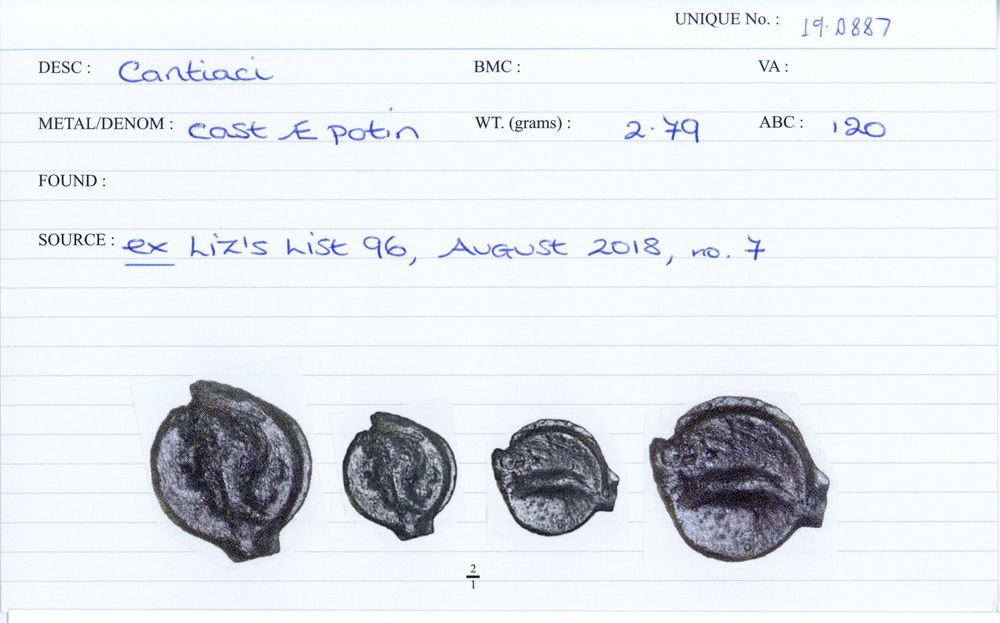 UNIQUE No. : 19.0887
DESC : Cantiaci BMC : VA :
METAL/DENOM : cast Æ potin WT. (grams) : 2.79 ABC : 120
FOUND :
SOURCE : ex Liz's List 96, August 2018, no. 7
2
1